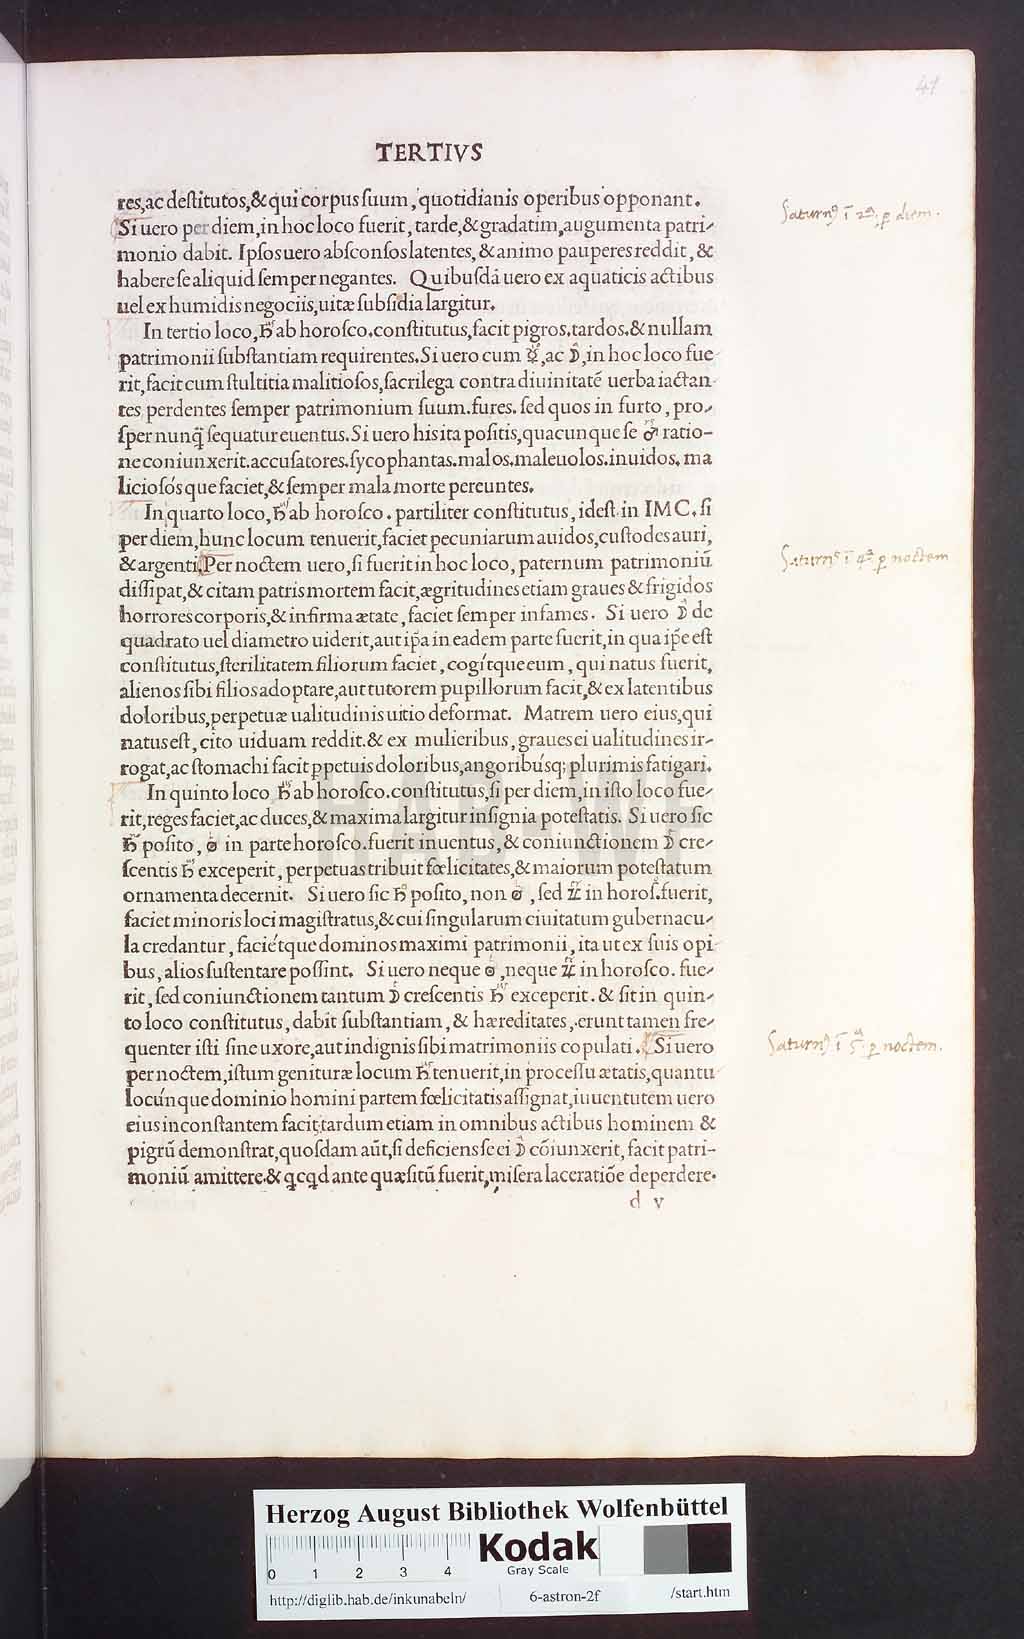 41
TERTIVS
res,ac deſtitutos,& qui corpus ſuum, quotidianis operibus opponant.
Si uero per diem,in hoc loco fuerit, tarde,& gradatim,augumenta patri-
monio dabit. Ipſos uero abſconſos latentes, & animo pauperes reddit, &
habere ſe aliquid ſemper negantes. Quibuſdā uero ex aquaticis actibus
uel ex humidis negociis,uitæ ſubſidia largitur.
In tertio loco, ♄ ab horoſco.conſtitutus,facit pigros.tardos.& nullam
patrimonii ſubſtantiam requirentes.Si uero cum ☿,ac ☽,in hoc loco fue-
rit,facit cum ſtultitia malitioſos,ſacrilega contra diuinitatē uerba iactan-
tes perdentes ſemper patrimonium ſuum.fures. ſed quos in furto, pro-
ſper nunq̄ ſequatur euentus. Si uero his ita poſitis,quacunque ſe ♂ ratio-
ne coniunxerit.accuſatores.ſycophantas.malos.maleuolos.inuidos. ma
licioſósque faciet,& ſemper mala morte pereuntes.
In quarto loco, ♄ ab horoſco. partiliter conſtitutus, ideſt in IMC. ſi
per diem,hunc locum tenuerit,faciet pecuniarum auidos,cuſtodes auri,
& argenti. Per noctem uero,ſi fuerit in hoc loco, paternum patrimoniū
diſſipat,& citam patris mortem facit,ægritudines etiam graues & frigidos
horrores corporis,& infirma ætate, faciet ſemper infames. Si uero ☽ de
quadrato uel diametro uiderit,aut ip̄a in eadem parte fuerit,in qua ip̄e eſt
conſtitutus,ſterilitatem filiorum faciet, cogítque eum, qui natus fuerit,
alienos ſibi filios adoptare,aut tutorem pupillorum facit,& ex latentibus
doloribus,perpetuæ ualitudinis uitio deformat. Matrem uero eius,qui
natus eſt, cito uiduam reddit.& ex mulieribus, graues ei ualitudines ir-
rogat,ac ſtomachi facit ꝑpetuis doloribus,angoribúsq; plurimis fatigari.
In quinto loco, ♄ ab horoſco.conſtitutus,ſi per diem,in iſto loco fue-
rit,reges faciet,ac duces,& maxima largitur inſignia poteſtatis. Si uero ſic
♄ poſito, ☉ in parte horoſco.fuerit inuentus, & coniunctionem ☽ cre-
ſcentis ♄ exceperit, perpetuas tribuit fœlicitates,& maiorum poteſtatum
ornamenta decernit. Si uero ſic ♄ poſito, non ☉, ſed ♃ in horoſ.fuerit,
faciet minoris loci magiſtratus,& cui ſingularum ciuitatum gubernacu-
la credantur, faciétque dominos maximi patrimonii, ita ut ex ſuis opi-
bus, alios ſuſtentare poſſint. Si uero neque ☉, neque ♃ in horoſco. fue-
rit, ſed coniunctionem tantum ☽ creſcentis ♄ exceperit. & ſit in quin-
to loco conſtitutus, dabit ſubſtantiam, & hæreditates, erunt tamen fre-
quenter iſti ſine uxore,aut indignis ſibi matrimoniis copulati. Si uero
per noctem,iſtum genituræ locum ♄ tenuerit,in proceſſu ætatis,quantu
locúnque dominio homini partem fœlicitatis aſſignat,iuuentutem uero
eius inconſtantem facit;tardum etiam in omnibus actibus hominem &
pigrū demonſtrat,quoſdam aūt,ſi deficiens ſe ei ☽ cōiunxerit, facit patri-
moniū amittere.& qcqd ante quæſitū fuerit,miſera laceratiōe deperdere.
d v
Saturnꝰ ī 2ª. ꝑ diem.
Saturnꝰ ī 4ª ꝑ noctem
Saturnꝰ ī 5ª ꝑ noctem.
HAB-WF
Herzog August Bibliothek Wolfenbüttel
0 1 2 3 4
Kodak
Gray Scale
http://diglib.hab.de/inkunabeln/ 6-astron-2f /start.htm